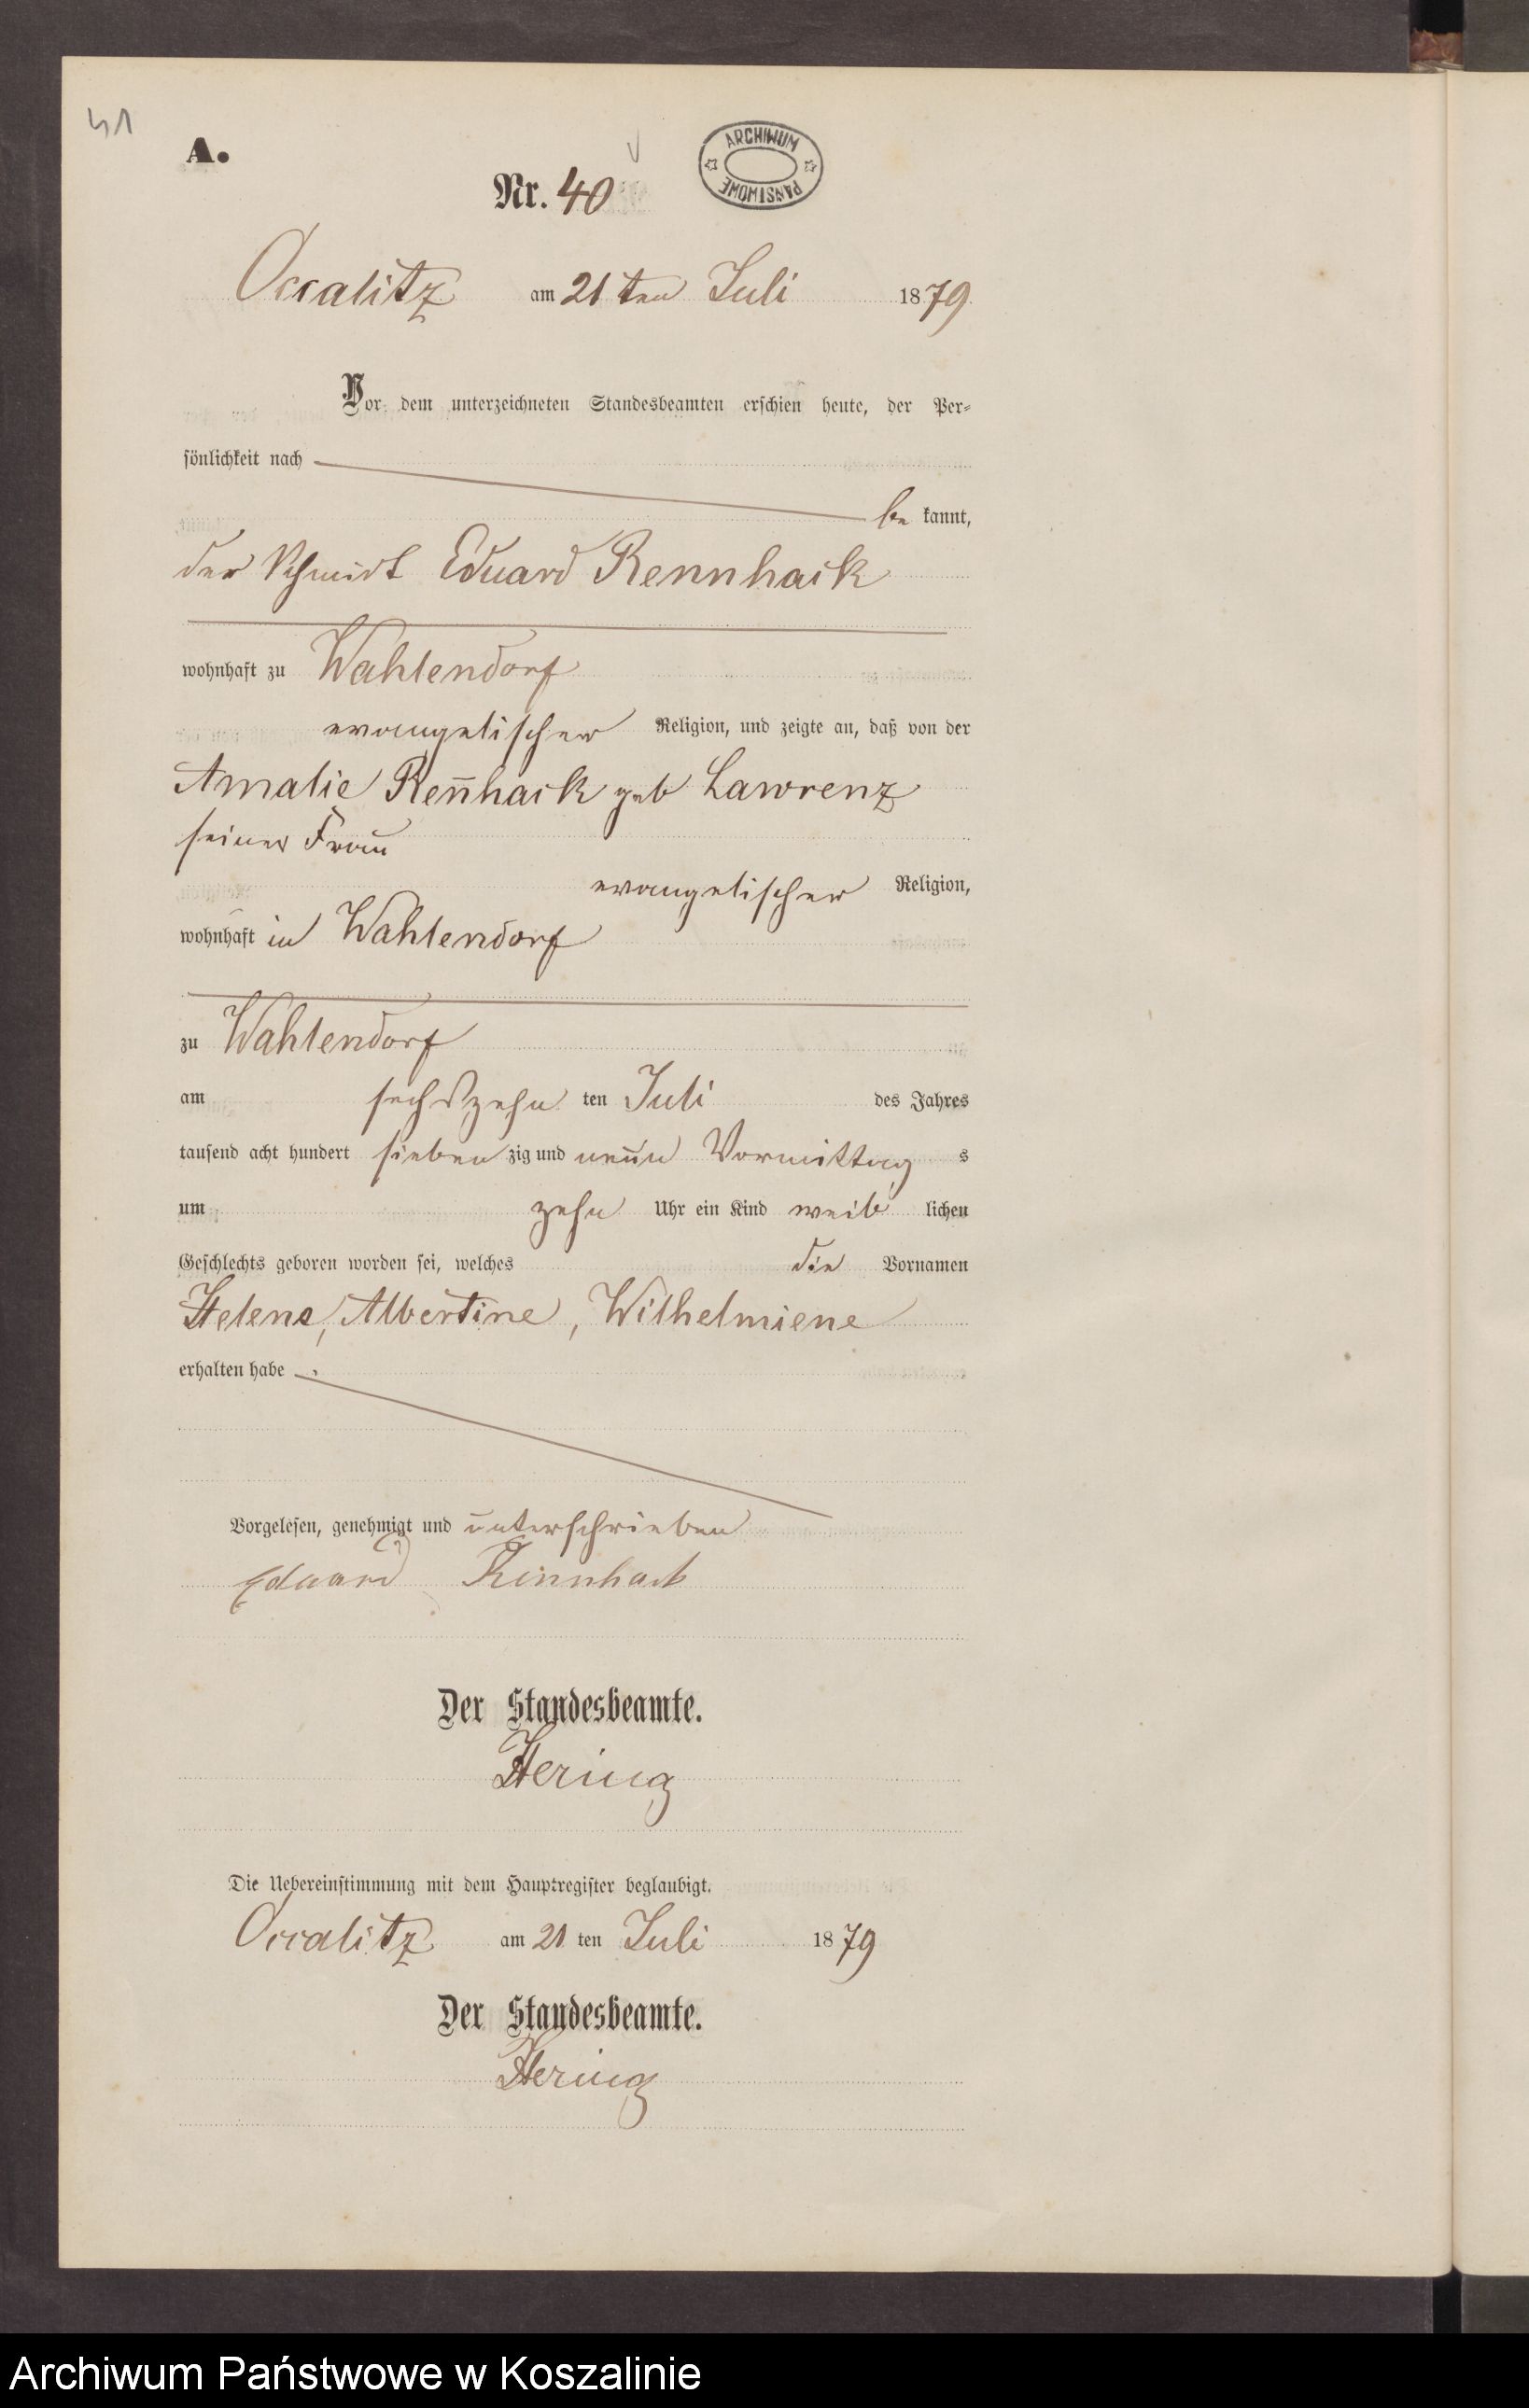 41
A.
ARCHIWUM PAŃSTWOWE
Nr. 40
Occalitz am 21 ten Juli 1879.
Vor dem unterzeichneten Standesbeamten erschien heute, der Per-
sönlichkeit nach
be kannt,
der Schmidt Eduard Rennhack
wohnhaft zu Wahlendorf
evangelischer Religion, und zeigte an, daß von der
Amalie Ren̄hack geb Lawrenz
seiner Frau
evangelischer Religion,
wohnhaft in Wahlendorf
zu Wahlendorf
am sechszehn ten Juli des Jahres
tausend acht hundert sieben zig und neun Vormittag s
um zehn Uhr ein Kind weib lichen
Geschlechts geboren worden sei, welches die Vornamen
Helene, Albertine, Wilhelmiene
erhalten habe .
Vorgelesen, genehmigt und unterschrieben
Eduard Rennhack
Der Standesbeamte.
Hering
Die Uebereinstimmung mit dem Hauptregister beglaubigt.
Occalitz am 21 ten Juli 1879
Der Standesbeamte.
Hering
Archiwum Państwowe w Koszalinie